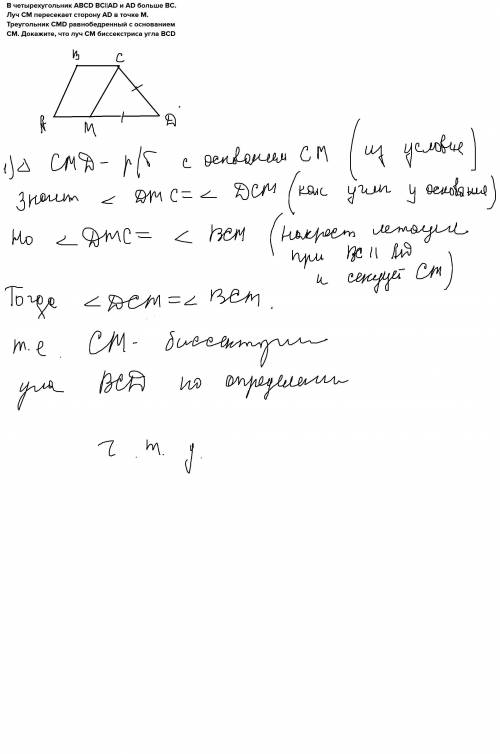 В четырехугольник ABCD BC||AD и AD больше BC.
Луч CM пересекает сторону AD в точке M.
Треугольник CMD равнобедренный с основанием
CM. Докажите, что луч CM биссектриса угла BCD
B C
A M D
1) Δ CMD - р/б с основанием CM (из условие)
Значит < DMC = < DCM (как углы у основания)
Но < DMC = < BCM (накрест лежащие
при BC || AD
и секущей CM)
Тогда < DCM = < BCM.
т.е. CM - биссектриса
угла BCD по определени
Ч.т.д.